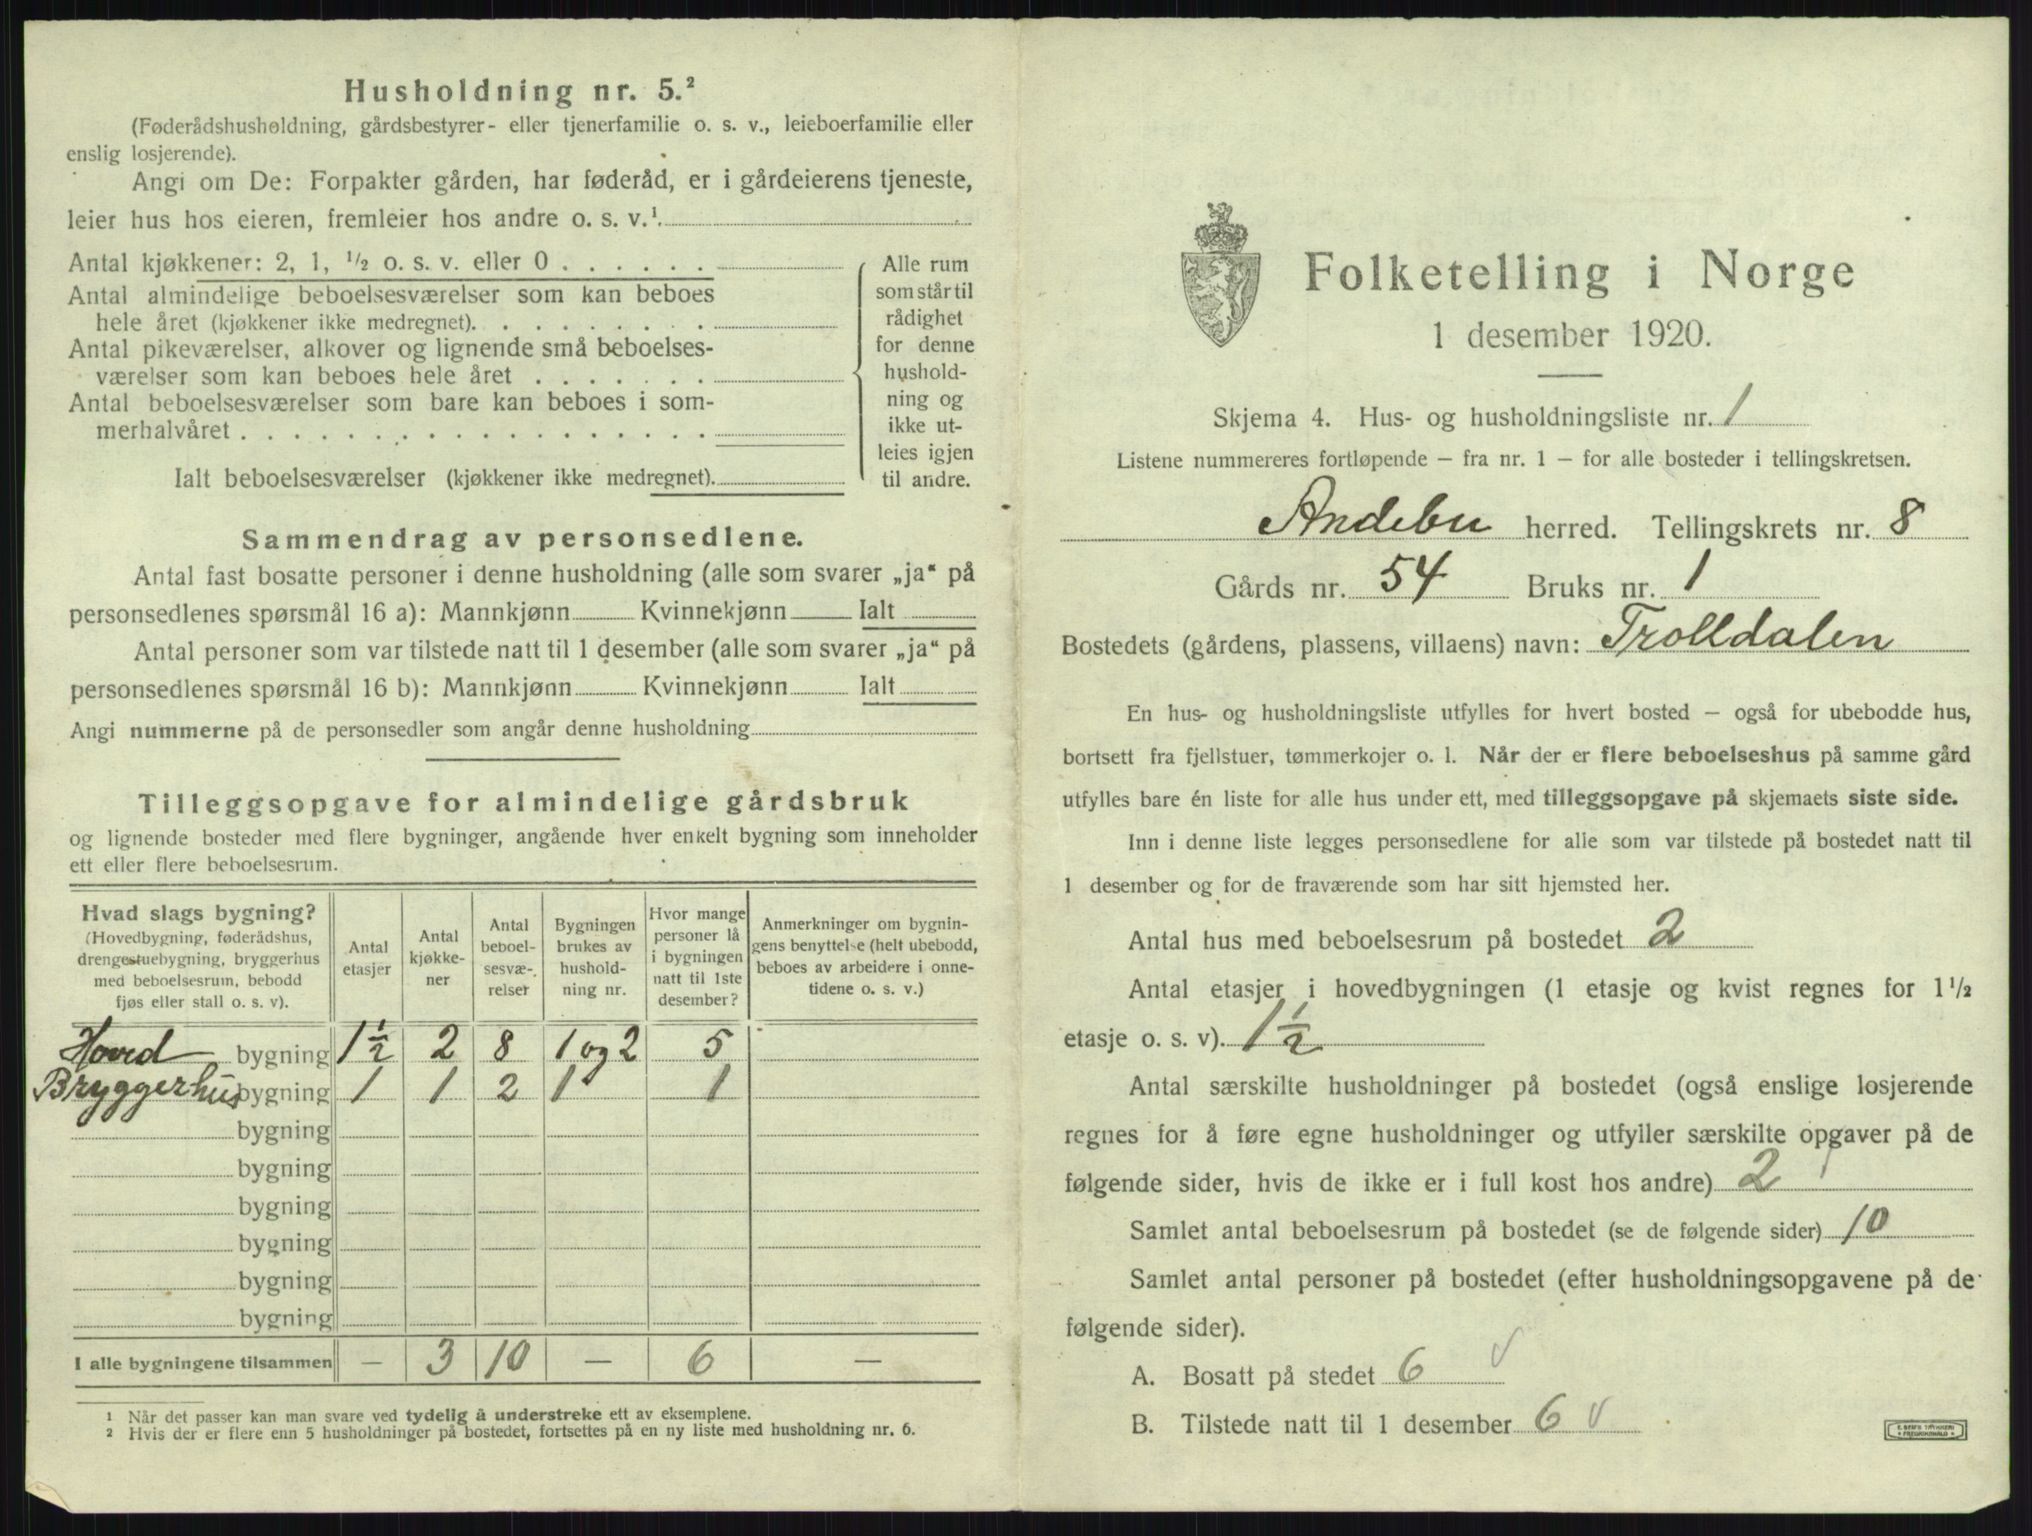 Husholdning nr. 5.²
(Føderådshusholdning, gårdsbestyrer- eller tjenerfamilie o. s. v., leieboerfamilie eller
enslig losjerende).
Angi om De: Forpakter gården, har føderåd, er i gårdeierens tjeneste,
leier hus hos eieren, fremleier hos andre o. s. v.¹.
Antal kjøkkener: 2, 1, ½ o. s. v. eller 0 . . . . . .
Antal almindelige beboelsesværelser som kan beboes
hele året (kjøkkener ikke medregnet). . . . . . . . .
Antal pikeværelser, alkover og lignende små beboelses-
værelser som kan beboes hele året . . . . . . .
Antal beboelsesværelser som bare kan beboes i som-
merhalvåret . . . . . . . . . . . . . . . . . .
Ialt beboelsesværelser (kjøkkener ikke medregnet).
Alle rum
som står til
rådighet
for denne
hushold-
ning og
ikke ut-
leies igjen
til andre.
Sammendrag av personsedlene.
Antal fast bosatte personer i denne husholdning (alle som svarer „ja“ på
personsedlenes spørsmål 16 a): Mannkjønn Kvinnekjønn Ialt
Antal personer som var tilstede natt til 1 desember (alle som svarer „ja“ på
personsedlenes spørsmål 16 b): Mannkjønn Kvinnekjønn Ialt
Angi nummerne på de personsedler som angår denne husholdning
Tilleggsopgave for almindelige gårdsbruk
og lignende bosteder med flere bygninger, angående hver enkelt bygning som inneholder
ett eller flere beboelsesrum.
Hvad slags bygning?
(Hovedbygning, føderådshus,
drengestuebygning, bryggerhus
med beboelsesrum, bebodd
fjøs eller stall o. s. v).
Antal
etasjer
Antal
kjøkke-
ner
Antal
beboel-
sesvæ-
relser
Bygningen
brukes av
hushold-
ning nr.
Hvor mange
personer lå
i bygningen
natt til 1ste
desember?
Anmerkninger om bygnin-
gens benyttelse (helt ubebodd,
beboes av arbeidere i onne-
tidene o. s. v.)
Hoved bygning 1½ 2 8 1 og 2 5
Bryggerhus bygning 1 1 2 1 1
bygning
bygning
bygning
bygning
bygning
bygning
I alle bygningene tilsammen — 3 10 — 6 —
¹ Når det passer kan man svare ved tydelig å understreke ett av eksemplene.
² Hvis der er flere enn 5 husholdninger på bostedet, fortsettes på en ny liste med husholdning nr. 6.
Folketelling i Norge
1 desember 1920.
Skjema 4. Hus- og husholdningsliste nr. 1
Listene nummereres fortløpende — fra nr. 1 — for alle bosteder i tellingskretsen.
Andebu herred. Tellingskrets nr. 8
Gårds nr. 54 Bruks nr. 1
Bostedets (gårdens, plassens, villaens) navn: Trolldalen
En hus- og husholdningsliste utfylles for hvert bosted — også for ubebodde hus,
bortsett fra fjellstuer, tømmerkojer o. l. Når der er flere beboelseshus på samme gård
utfylles bare én liste for alle hus under ett, med tilleggsopgave på skjemaets siste side.
Inn i denne liste legges personsedlene for alle som var tilstede på bostedet natt til
1 desember og for de fraværende som har sitt hjemsted her.
Antal hus med beboelsesrum på bostedet 2
Antal etasjer i hovedbygningen (1 etasje og kvist regnes for 1½
etasje o. s. v). 1½
Antal særskilte husholdninger på bostedet (også enslige losjerende
regnes for å føre egne husholdninger og utfyller særskilte opgaver på de
følgende sider, hvis de ikke er i full kost hos andre) 2
Samlet antal beboelsesrum på bostedet (se de følgende sider) 10
Samlet antal personer på bostedet (efter husholdningsopgavene på de
følgende sider).
A. Bosatt på stedet 6
B. Tilstede natt til 1 desember 6